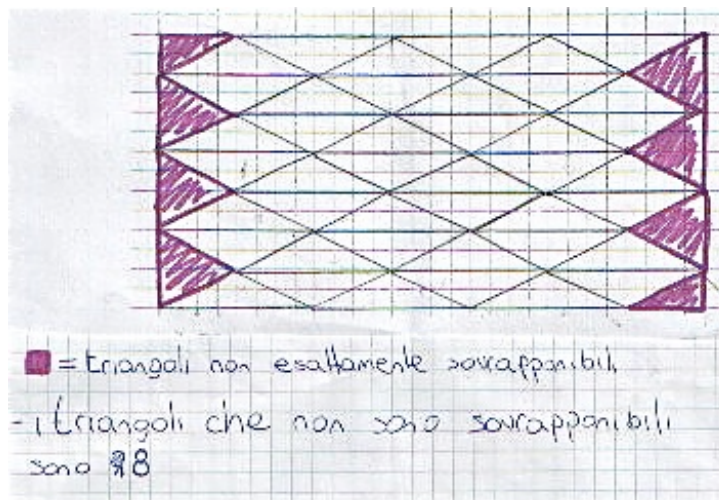 = triangoli non esattamente sovrapponibili
- i triangoli che non sono sovrapponibili
sono 8